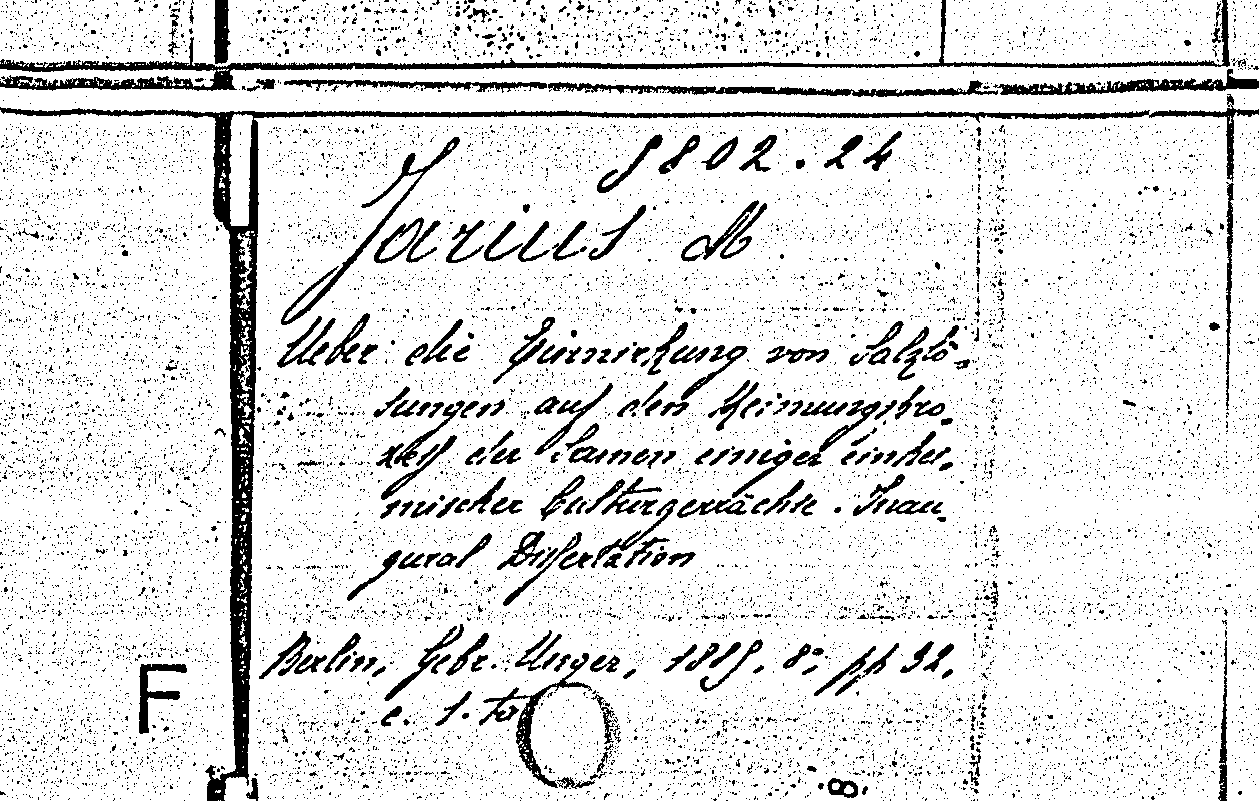 8802.24
Jarius M
Ueber die Einwirkung von Salzlö-
sungen auf den Keimungspro-
zess der Samen einiger einhei-
mischer Culturgewächse. Inau-
gural Dissertation
Berlin, Gebr. Unger, 1885. 8°, pp 32.
F
c. 1. ta
8